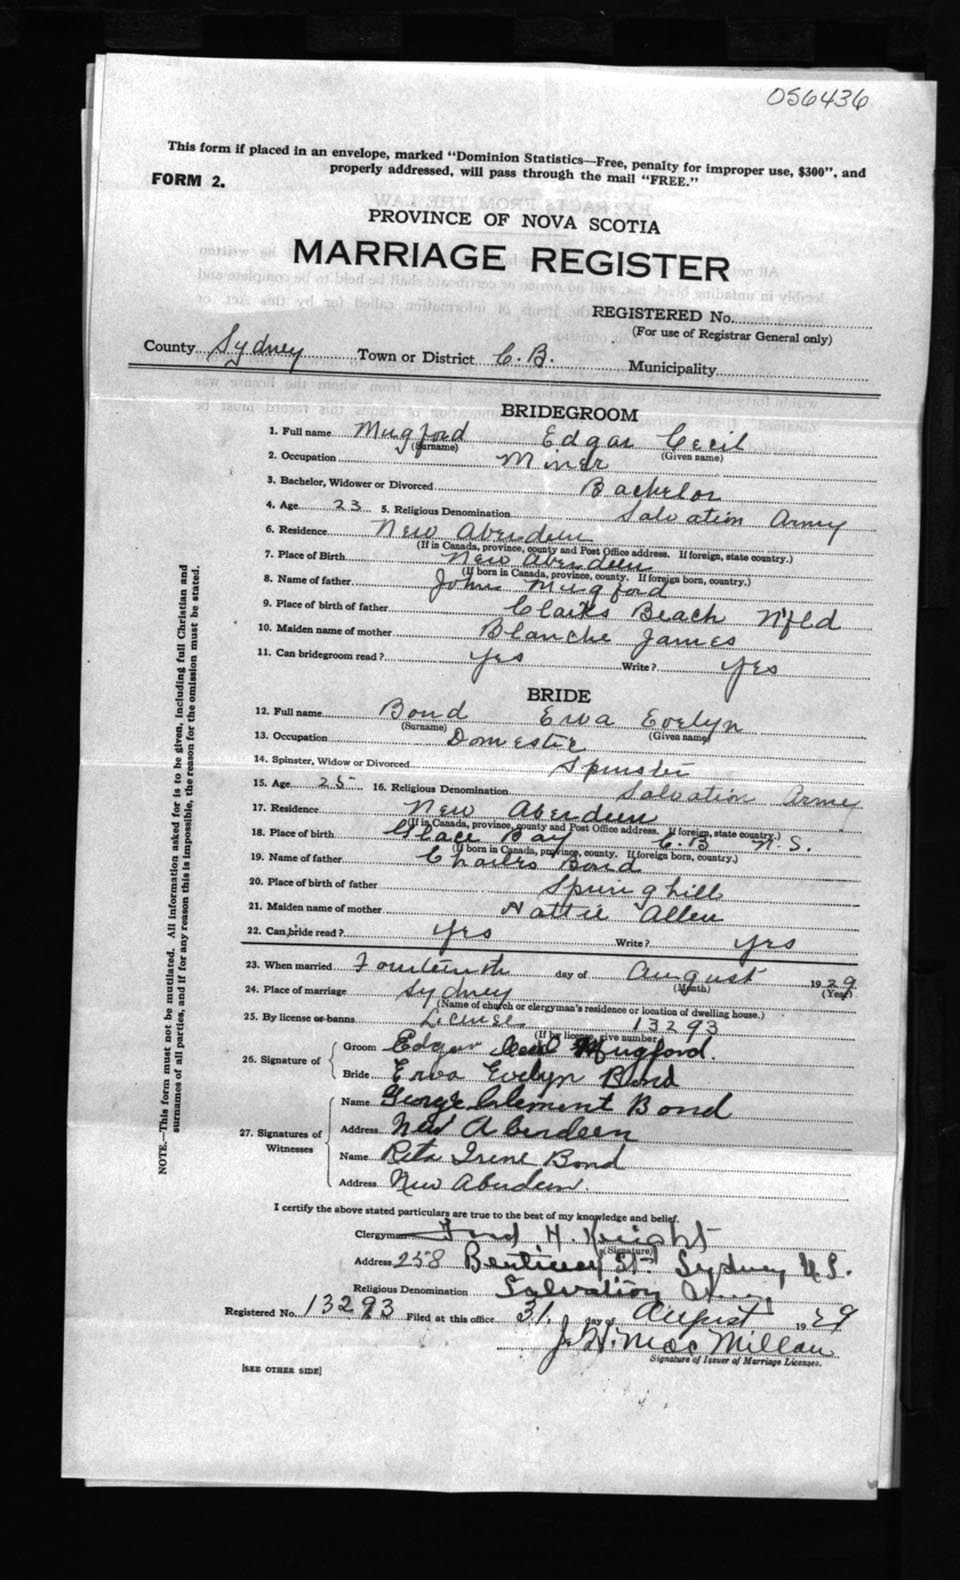 056436
This form if placed in an envelope, marked "Dominion Statistics—Free, penalty for improper use, $300", and
properly addressed, will pass through the mail "FREE."
FORM 2.
PROVINCE OF NOVA SCOTIA
MARRIAGE REGISTER
REGISTERED No.
(For use of Registrar General only)
County Sydney Town or District C.B. Municipality
BRIDEGROOM
1. Full name Mugford Edgar Cecil
(Surname) (Given name)
2. Occupation Miner
3. Bachelor, Widower or Divorced Bachelor
4. Age 23 5. Religious Denomination Salvation Army
6. Residence New Aberdeen
(If in Canada, province, county and Post Office address. If foreign, state country.)
7. Place of Birth New Aberdeen
(If born in Canada, province, county. If foreign born, country.)
8. Name of father John Mugford
9. Place of birth of father Clarks Beach Nfld
10. Maiden name of mother Blanche James
11. Can bridegroom read? yes Write? yes
BRIDE
12. Full name Bond Erva Evelyn
(Surname) (Given name)
13. Occupation Domestic
14. Spinster, Widow or Divorced Spinster
15. Age 25 16. Religious Denomination Salvation Army
17. Residence New Aberdeen
(If in Canada, province, county and Post Office address. If foreign, state country.)
18. Place of birth Glace Bay C.B N.S.
(If born in Canada, province, county. If foreign born, country.)
19. Name of father Charles Bond
20. Place of birth of father Springhill
21. Maiden name of mother Hattie Allen
22. Can bride read? yes Write? yes
23. When married Fourteenth day of August 1929
(Month) (Year)
24. Place of marriage Sydney
(Name of church or clergyman's residence or location of dwelling house.)
25. By license or banns License 13293
(If by license, give number)
26. Signature of
Groom Edgar Cecil Mugford.
Bride Erva Evelyn Bond
27. Signatures of Witnesses
Name George Clement Bond
Address New Aberdeen
Name Rita Irene Bond
Address New Aberdeen.
I certify the above stated particulars are true to the best of my knowledge and belief.
Clergyman H. Knight
(Signature)
Address 258 St. Sydney N.S.
Religious Denomination Salvation Army
Registered No. 13293 Filed at this office 31. day of August 1929
J. H. MacMillan
Signature of Issuer of Marriage Licenses.
[SEE OTHER SIDE]
NOTE.—This form must not be mutilated. All information asked for is to be given, including full Christian and
surnames of all parties, and if for any reason this is impossible, the reason for the omission must be stated.